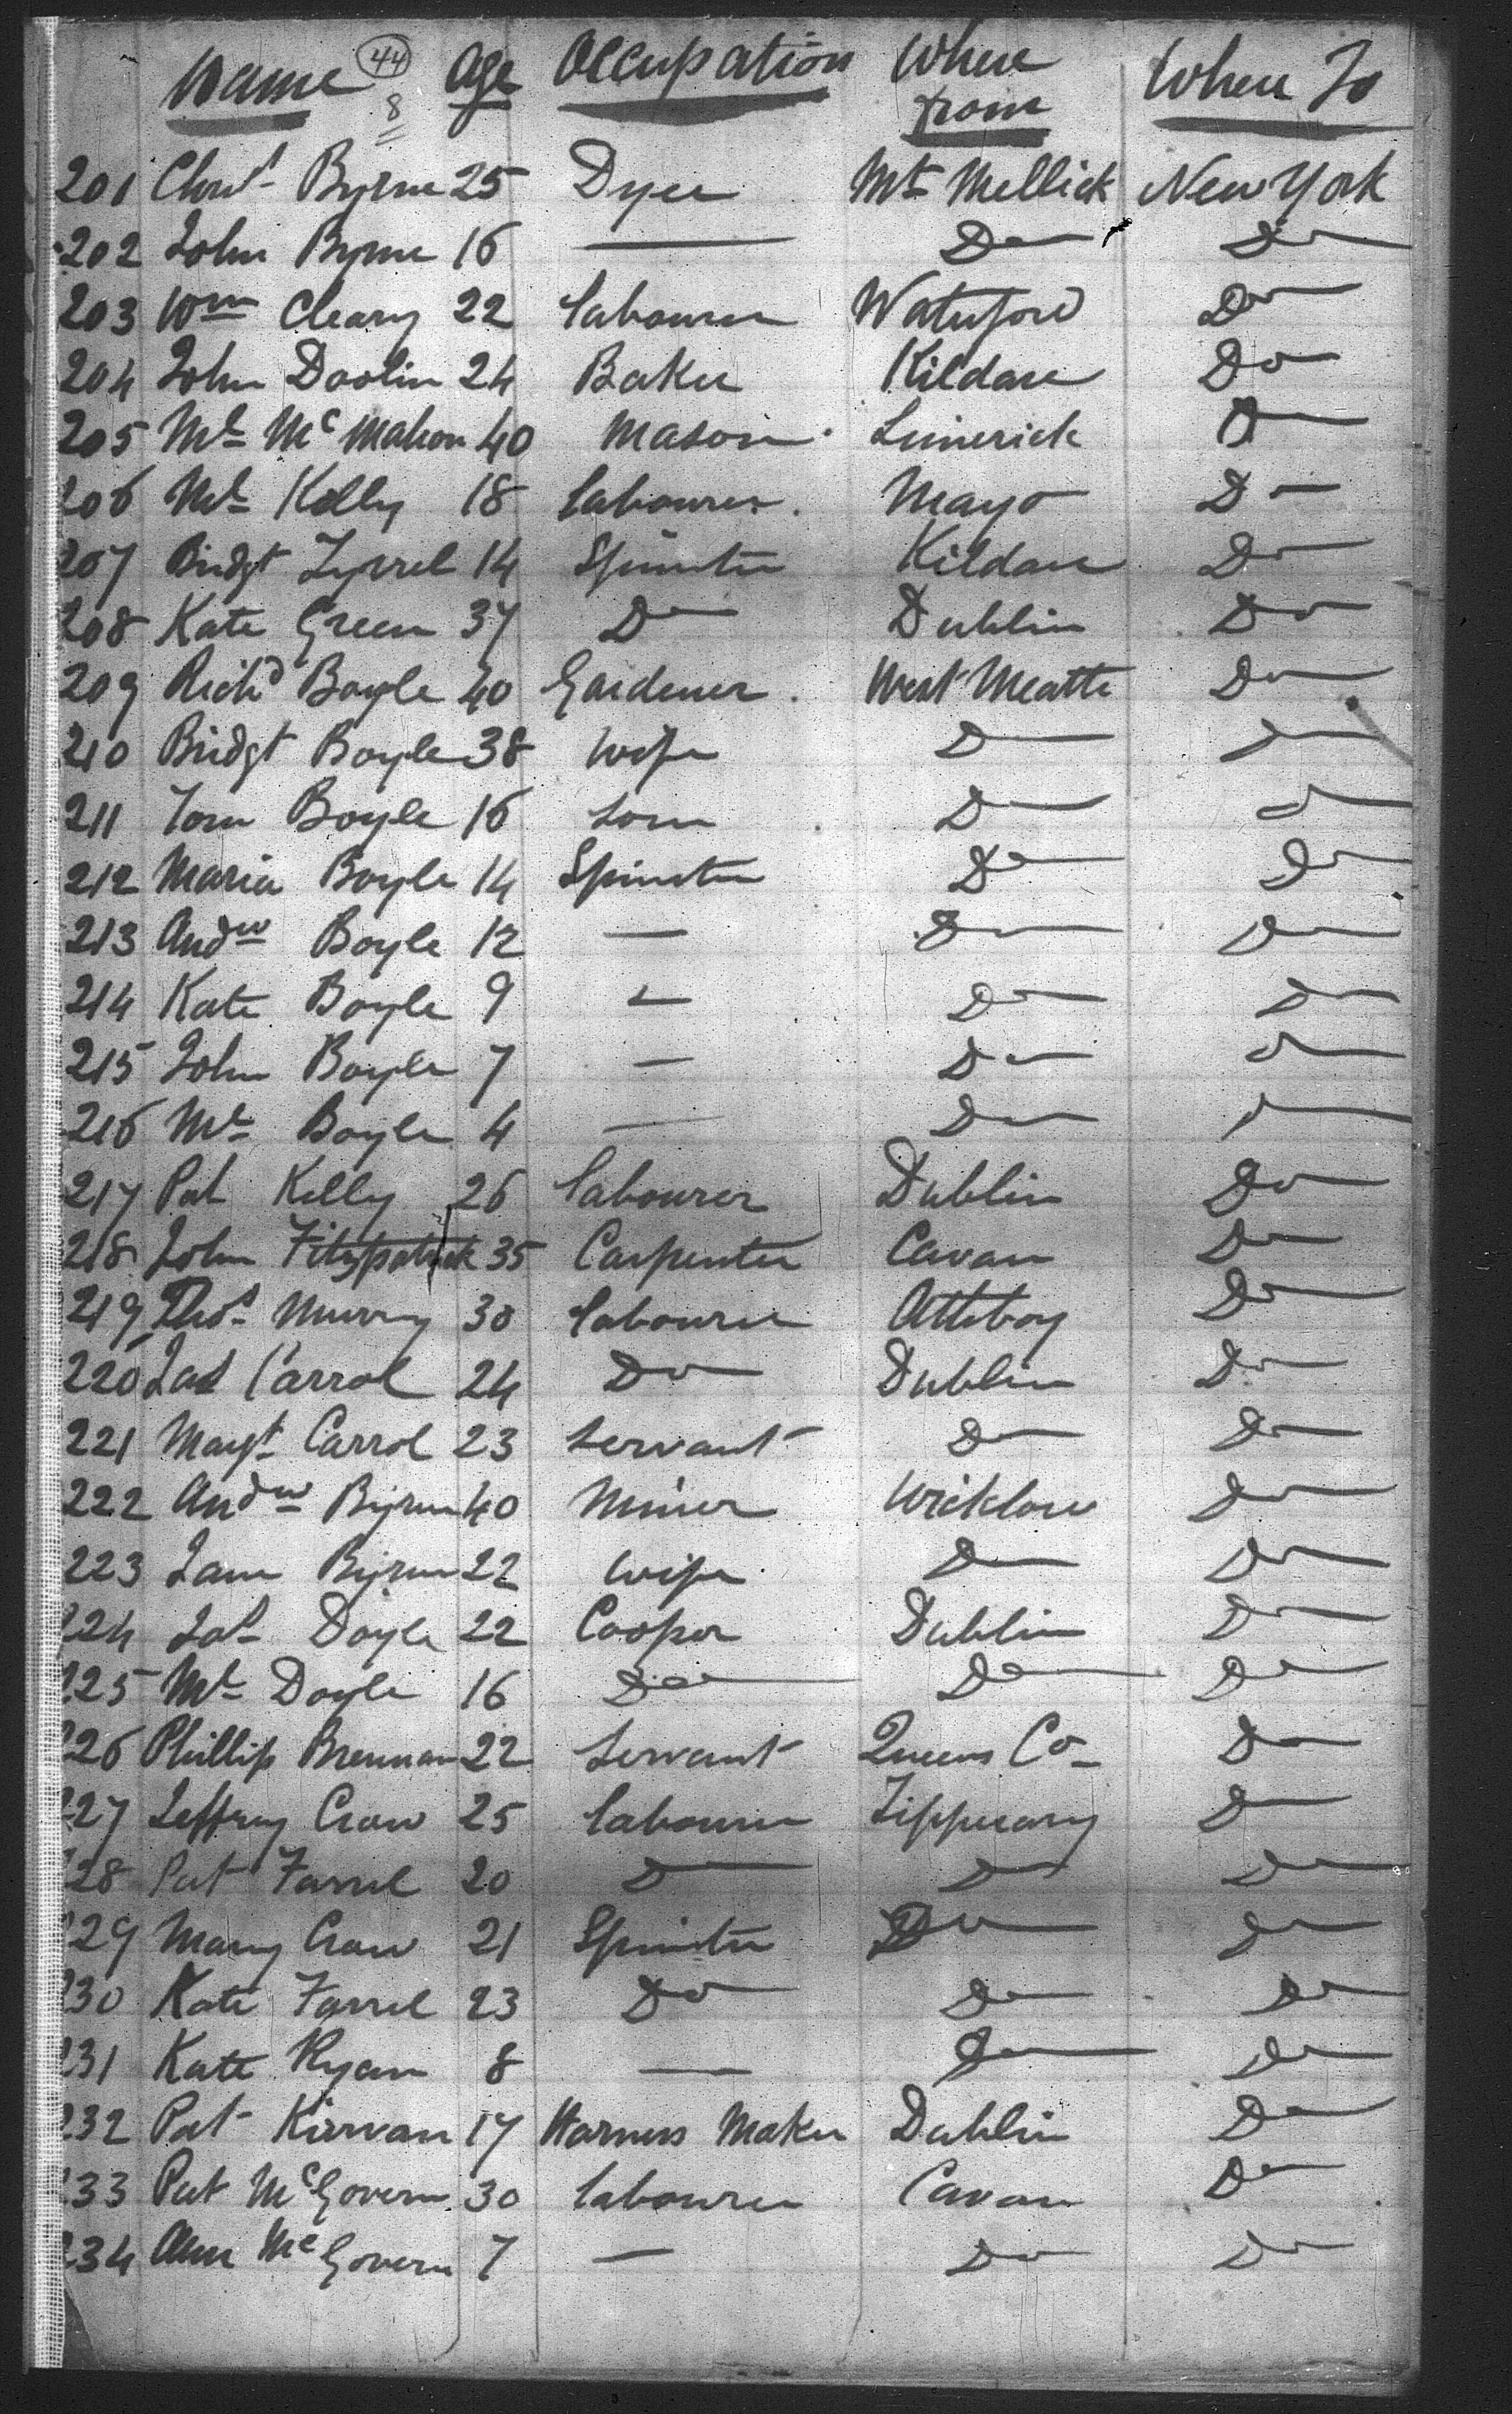 Name 44 Age Occupation Where from Where To
8
201 Chrst Byrne 25 Dyer Mt Mellick New York
202 John Byrne 16 — Do Do
203 Wm Cleary 22 labourer Waterford Do
204 John Doolin 24 Baker Kildare Do
205 Ml Mc Mahon 40 Mason Limerick Do
206 Ml Kelly 18 labourer Mayo Do
207 Bridgt Tyrrel 14 Spinster Kildare Do
208 Kate Green 37 Do Dublin Do
209 Richd Boyle 40 Gardener West Meath Do
210 Bridgt Boyle 38 wife Do Do
211 Tom Boyle 16 son Do Do
212 Maria Boyle 14 Spinster Do Do
213 Andw Boyle 12 — Do Do
214 Kate Boyle 9 — Do Do
215 John Boyle 7 — Do Do
216 Ml Boyle 4 — Do Do
217 Pat Kelly 26 labourer Dublin Do
218 John Fitzpatrick 35 Carpenter Cavan Do
219 Thos Murray 30 labourer Attboy Do
220 Jas Carrol 24 Do Dublin Do
221 Margt Carrol 23 servant Do Do
222 Andw Byrne 40 Miner Wicklow Do
223 Jane Byrne 22 wife Do Do
224 Jas Doyle 22 Cooper Dublin Do
225 Ml Doyle 16 Do Do Do
226 Phillip Brennan 22 servant Queens Co Do
227 Jeffrey Crow 25 labourer Tipperary Do
228 Pat Farrel 20 Do Do Do
229 Mary Crow 21 Spinster Do Do
230 Kate Farrel 23 Do Do Do
231 Kate Ryan 8 — Do Do
232 Pat Kirwan 17 Harness Maker Dublin Do
233 Pat McGovern 30 labourer Cavan Do
234 Ann McGovern 7 — Do Do